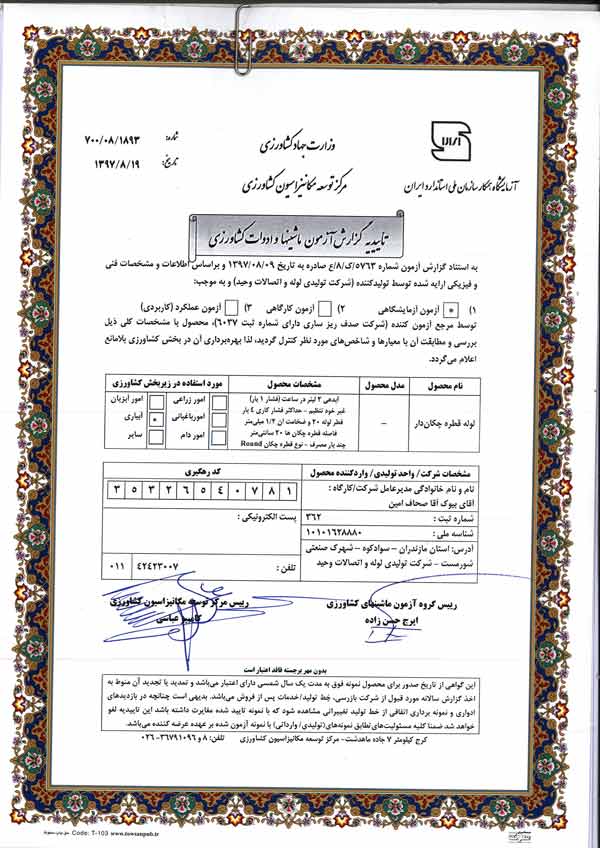 وزارت جهاد کشاورزی
شماره: ۷۰۰/۰۸/۱۸۹۳
مرکز توسعه مکانیزاسیون کشاورزی
تاریخ: ۱۳۹۷/۸/۱۹
آزمایشگاه همکار سازمان ملی استاندارد ایران
تاییدیه گزارش آزمون ماشینها و ادوات کشاورزی
به استناد گزارش آزمون شماره ۵۷۶۳/گ/۸/ع صادره به تاریخ ۱۳۹۷/۰۸/۰۹ و براساس اطلاعات و مشخصات فنی
و فیزیکی ارایه شده توسط تولیدکننده (شرکت تولیدی لوله و اتصالات وحید) و به موجب:
۱) آزمون آزمایشگاهی * ۲) آزمون کارگاهی ۳) آزمون عملکرد (کاربردی)
توسط مرجع آزمون کننده (شرکت صدف ریز ساری دارای شماره ثبت ۶۰۳۷)، محصول با مشخصات کلی ذیل
بررسی و مطابقت آن با معیارها و شاخص‌های مورد نظر کنترل گردید، لذا بهره‌برداری آن در بخش کشاورزی بلامانع
اعلام می‌گردد.
نام محصول مدل محصول مشخصات محصول مورد استفاده در زیربخش کشاورزی
لوله قطره چکان‌دار
–
آبدهی ۲ لیتر در ساعت (فشار ۱ بار)
غیر خود تنظیم - حداکثر فشار کاری ۴ بار
قطر لوله ۲۰ و ضخامت آن ۱/۲ میلی‌متر
فاصله قطره چکان ها ۲۰ سانتی‌متر
چند بار مصرف - نوع قطره چکان Round
امور زراعی امور آبزیان
امورباغبانی آبیاری *
امور دام سایر
مشخصات شرکت/ واحد تولیدی/ واردکننده محصول کد رهگیری
نام و نام خانوادگی مدیرعامل شرکت/کارگاه :
آقای بیوک آقا صحاف امین
۳ ۵ ۳ ۲ ۶ ۵ ۴ ۰ ۷ ۸ ۱
شماره ثبت : ۳۶۲
پست الکترونیکی :
شناسه ملی : ۱۰۱۰۱۶۲۸۸۸۰
آدرس: استان مازندران – سوادکوه – شهرک صنعتی
شورمست – شرکت تولیدی لوله و اتصالات وحید
تلفن : ۴۲۴۲۳۰۰۷ ۰۱۱
رییس گروه آزمون ماشینهای کشاورزی
ایرج حسن زاده
رییس مرکز توسعه مکانیزاسیون کشاورزی
کامبیز عباسی
بدون مهر برجسته فاقد اعتبار است
این گواهی از تاریخ صدور برای محصول نمونه فوق به مدت یک سال شمسی دارای اعتبار می‌باشد و تمدید یا تجدید آن منوط به
اخذ گزارش سالانه مورد قبول از شرکت بازرسی، خط تولید/خدمات پس از فروش می‌باشد. بدیهی است چنانچه در بازدیدهای
ادواری و نمونه برداری اتفاقی از خط تولید تغییراتی مشاهده شود که با نمونه تایید شده مغایرت داشته باشد این تاییدیه لغو
خواهد شد ضمنا کلیه مسئولیت‌های تطابق نمونه‌های (تولیدی/ وارداتی) با نمونه آزمون شده بر عهده عرضه کننده می‌باشد.
کرج کیلومتر ۷ جاده ماهدشت- مرکز توسعه مکانیزاسیون کشاورزی تلفن: ۸ و ۳۶۷۹۱۰۹۶-۰۲۶
Code: T-103 www.towsanpub.ir